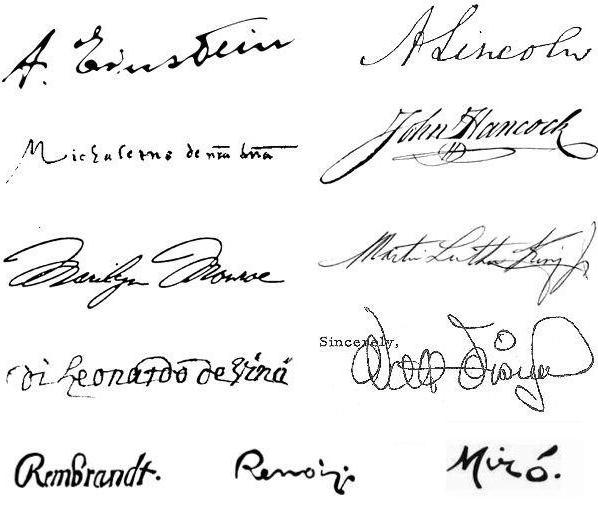 A. Einstein
A Lincoln
John Hancock
Marilyn Monroe
Martin Luther King Jr
Sincerely,
di Leonardo de
Walt Disney
Rembrandt.
Renoir.
Miró.